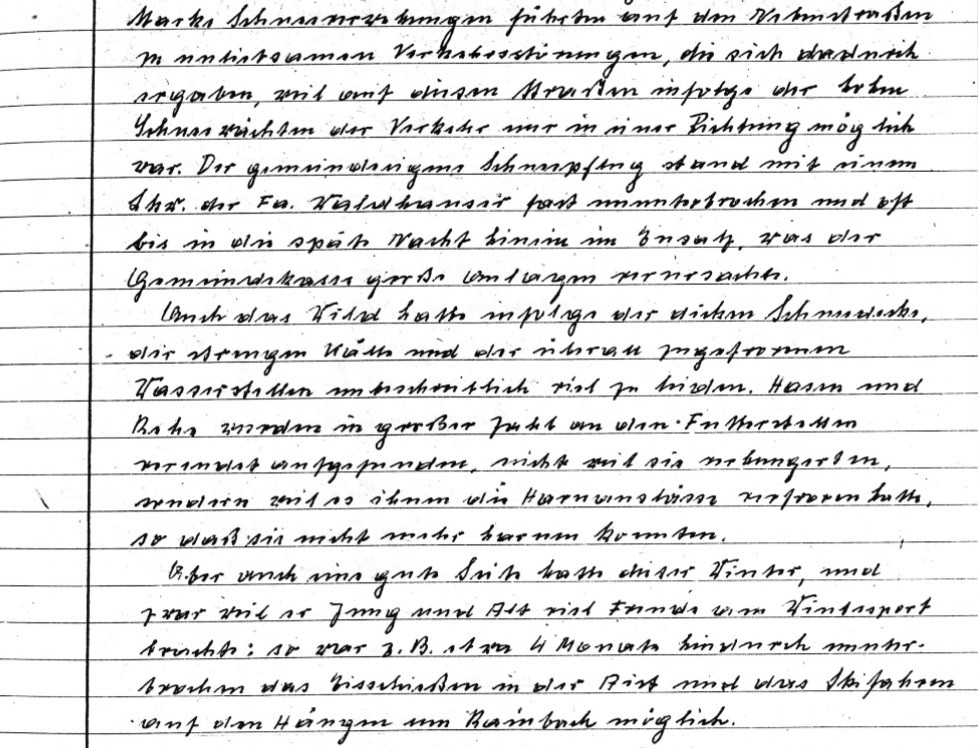 Starke Schneeverwehungen führten auf den Nebenstraßen
zu unliebsamen Verkehrsstörungen, die sich dadurch
ergaben, weil auf diesen Straßen infolge der hohen
Schneewächten der Verkehr nur in einer Richtung möglich
war. Der gemeindeeigene Schneepflug stand mit einem
Lkw. der Fa. Waldhauser fast ununterbrochen und oft
bis in die späte Nacht hinein im Einsatz, was der
Gemeindekasse große Auslagen verursachte.
Auch das Wild hatte infolge der dicken Schneedecke,
der strengen Kälte und der überall zugefrorenen
Wasserstellen unbeschreiblich viel zu leiden. Hasen und
Rehe wurden in großer Zahl an den Futterstellen
verendet aufgefunden, nicht weil sie verhungerten,
sondern weil es ihnen die Harnauslässe verfroren hatte,
so daß sie nicht mehr harnen konnten.
Aber auch eine gute Seite hatte dieser Winter, und
zwar weil er Jung und Alt viel Freude am Wintersport
brachte: so war z.B. etwa 4 Monate hindurch ununter-
brochen das Eisschießen in der Aist und das Skifahren
auf den Hängen um Rainbach möglich.